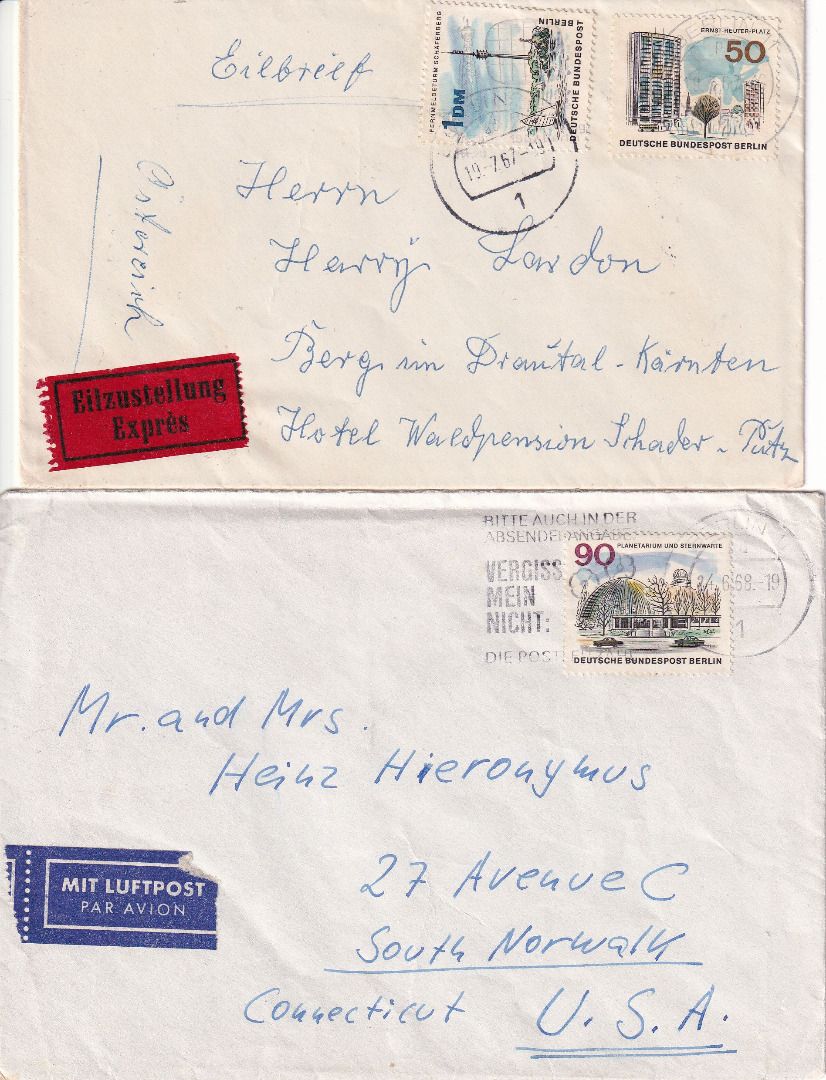 Eilbrief
FERNMELDETURM SCHÄFERBERG
1 DM
DEUTSCHE BUNDESPOST
BERLIN
ERNST-REUTER-PLATZ
50
DEUTSCHE BUNDESPOST BERLIN
19.-7.67.-19
1
Östereich
Herrn
Harry Lardon
Berg im Drautal - Kärnten
Hotel Waldpension Schader - Putz
Eilzustellung
Exprès
BITTE AUCH IN DER
ABSENDERANGABE
VERGISS
MEIN
NICHT:
DIE POSTLEITZAHL
90
PLANETARIUM UND STERNWARTE
DEUTSCHE BUNDESPOST BERLIN
BERLIN
24.6.68.-19
1
Mr. and Mrs.
Heinz Hieronymus
27 Avenue C
South Norwalk
Connecticut U.S.A.
MIT LUFTPOST
PAR AVION